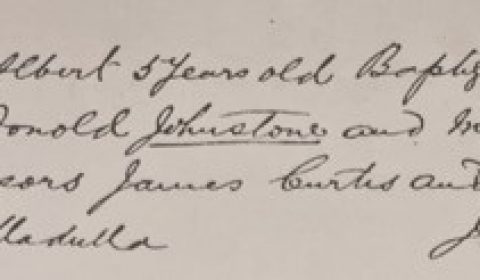 Albert 5 Years old Baptiz
Donald Johnstone and M
sors James Curtis and
lladulla J